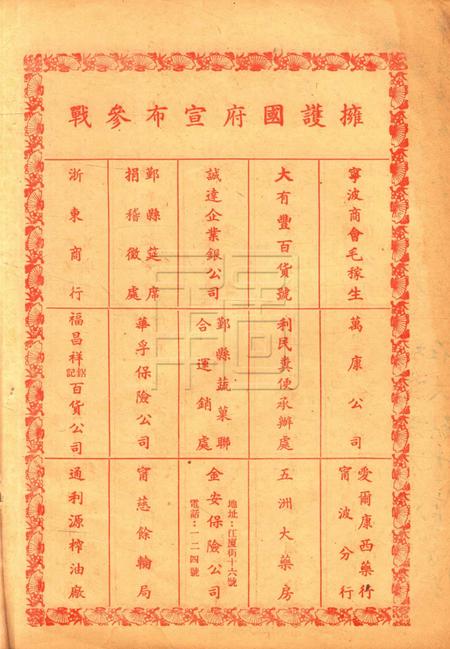 擁護國府宣布參戰
寧波商會毛稼生
大有豐百貨號
誠達企業銀公司
鄞縣筵席
捐稽徵處
浙東商行
萬康公司
利民糞便承辦處
鄞縣蔬菓聯
合運銷處
華孚保險公司
福昌祥銘記百貨公司
愛爾康西藥行
甯波分行
五洲大藥房
地址：江廈街十六號
金安保險公司
電話：一二四號
甯慈餘輪局
通利源榨油廠